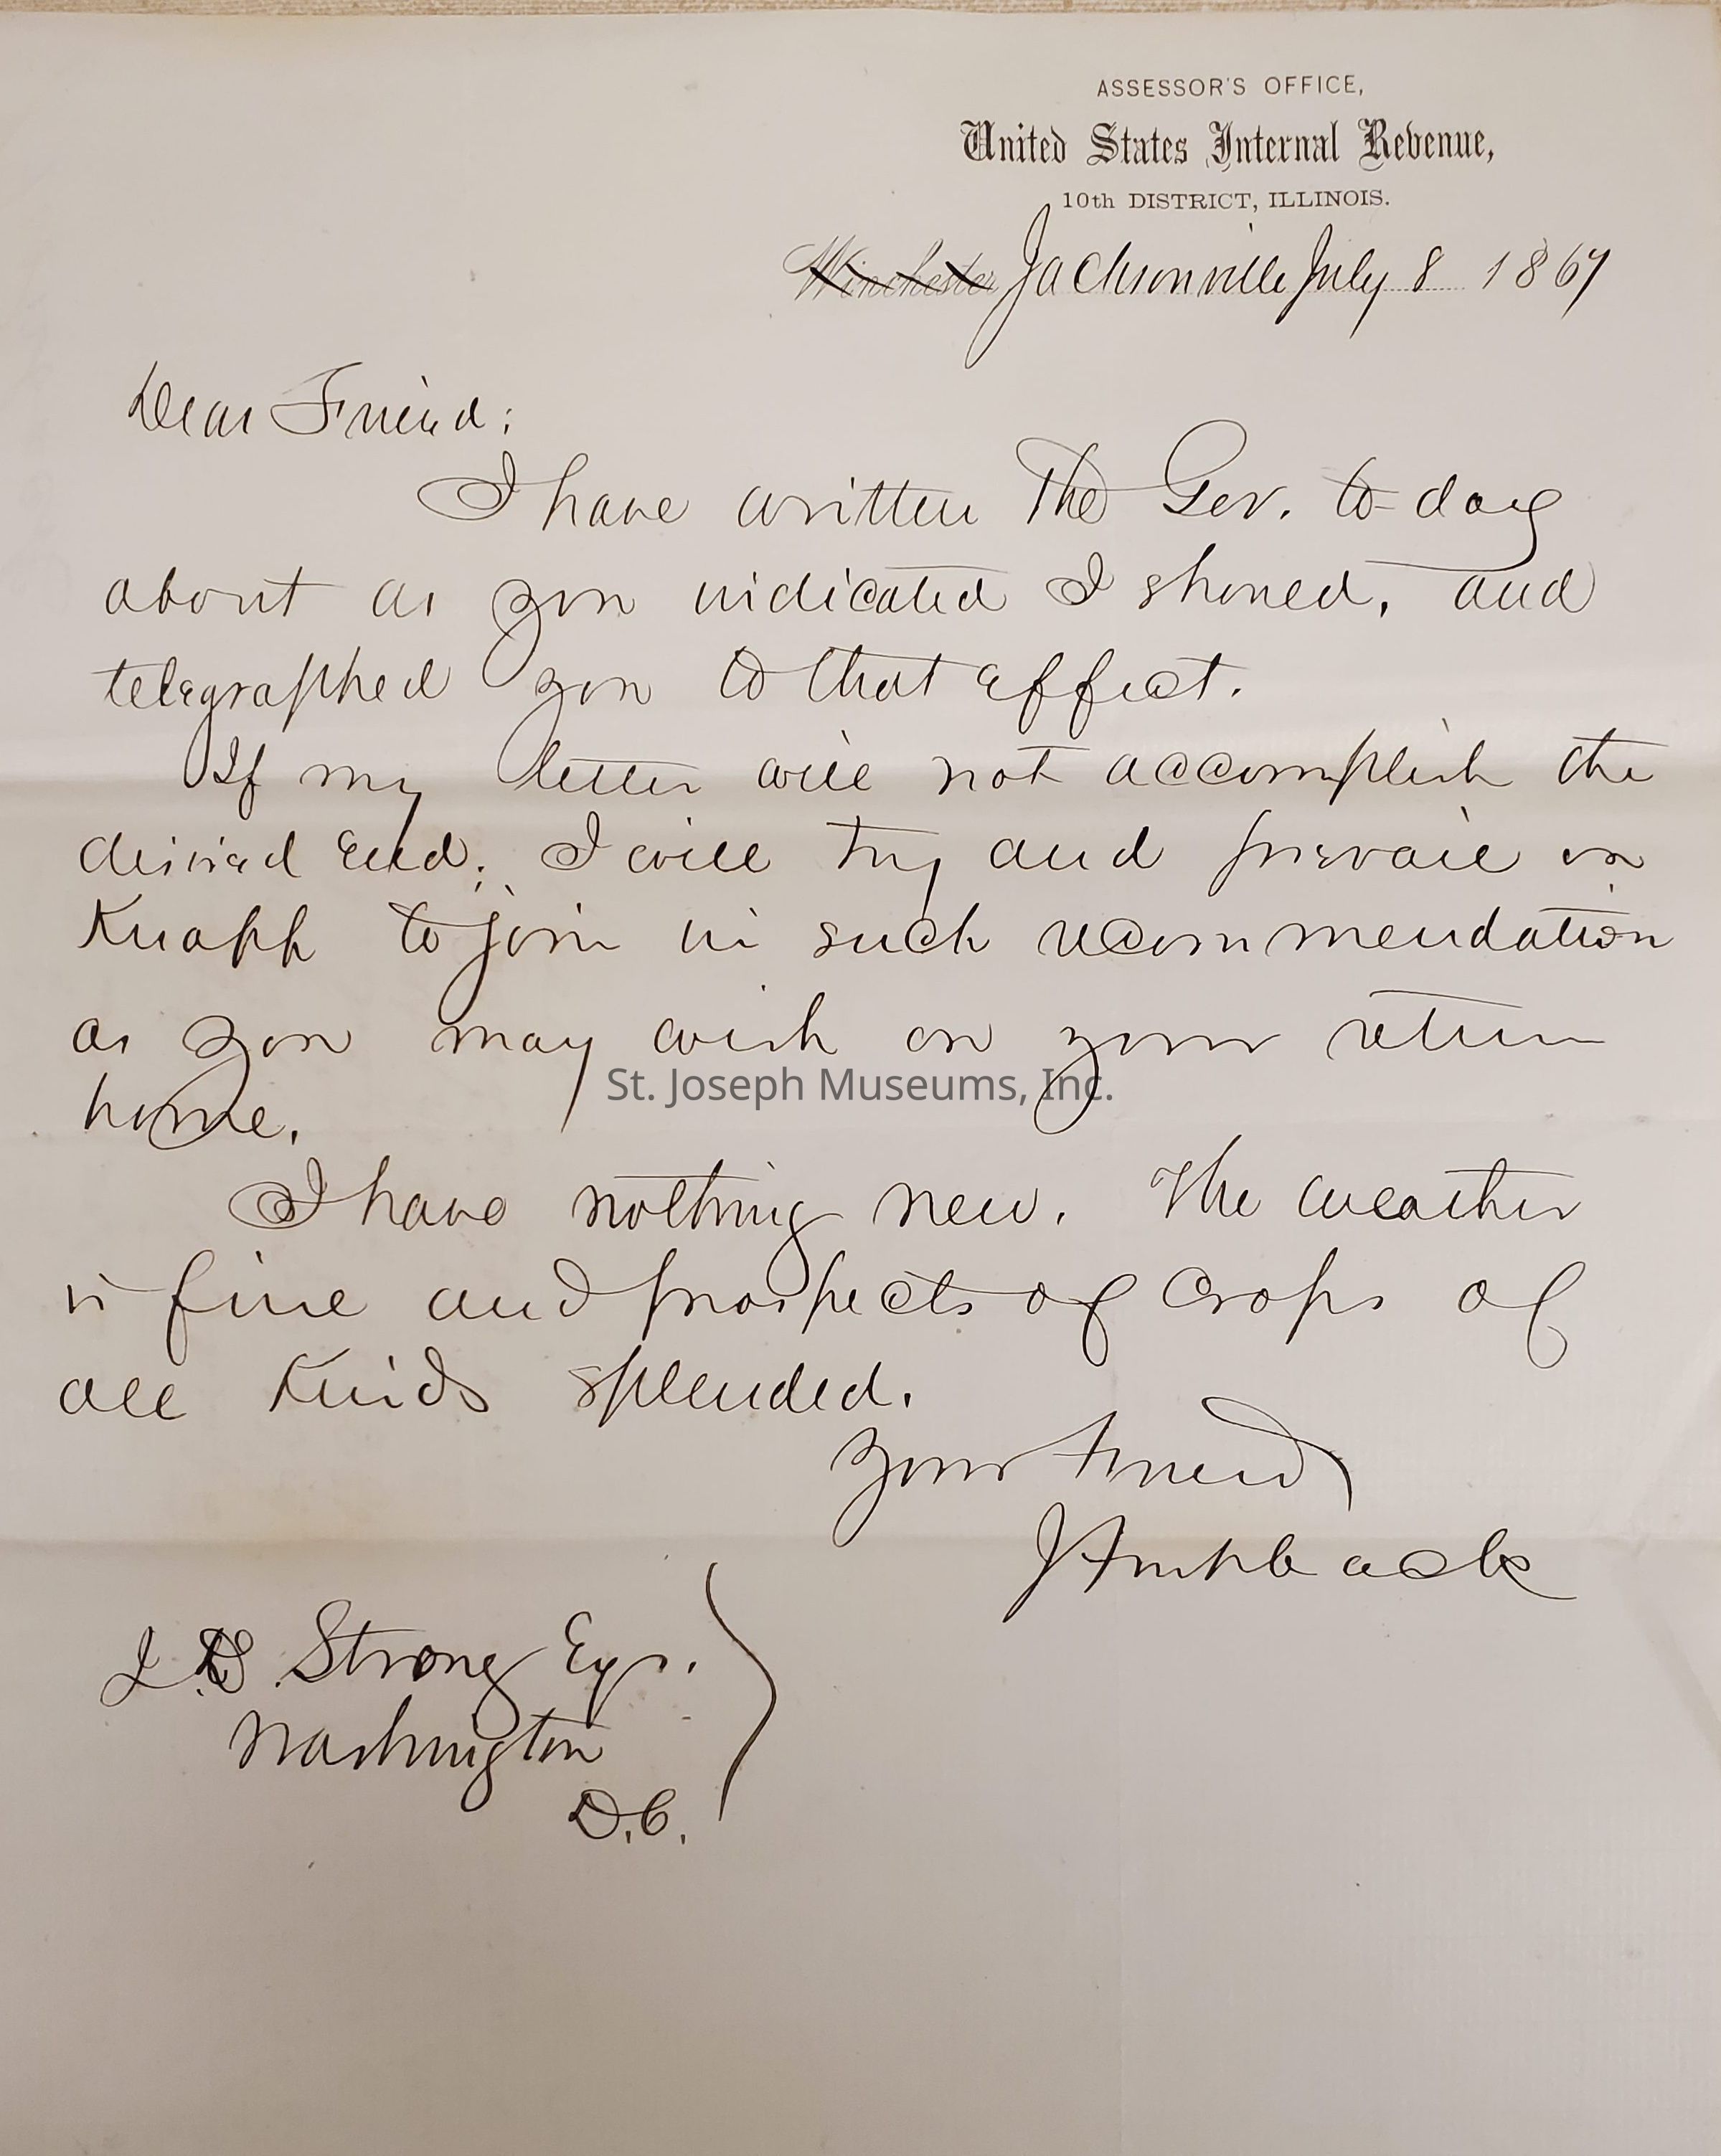 ASSESSOR'S OFFICE,
United States Internal Revenue,
10th DISTRICT, ILLINOIS.
Winchester Jacksonville July 8 1867
Dear Friend:
I have written The Gov. to-day
about as you indicated I should, and
telegraphed you to that effect.
If my letter will not accomplish the
desired end; I will try and prevail on
Knapp to join in such recommendation
as you may wish on your return
home.
St. Joseph Museums, Inc.
I have nothing new. The weather
is fine and prospects of crops of
all kinds splended.
Your Friend
Strong Eqr.
Washington
D.C.